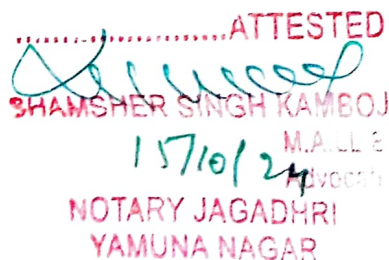 ..............................ATTESTED
SHAMSHER SINGH KAMBOJ
M.A.LL
15/10/24
Advocat
NOTARY JAGADHRI
YAMUNA NAGAR